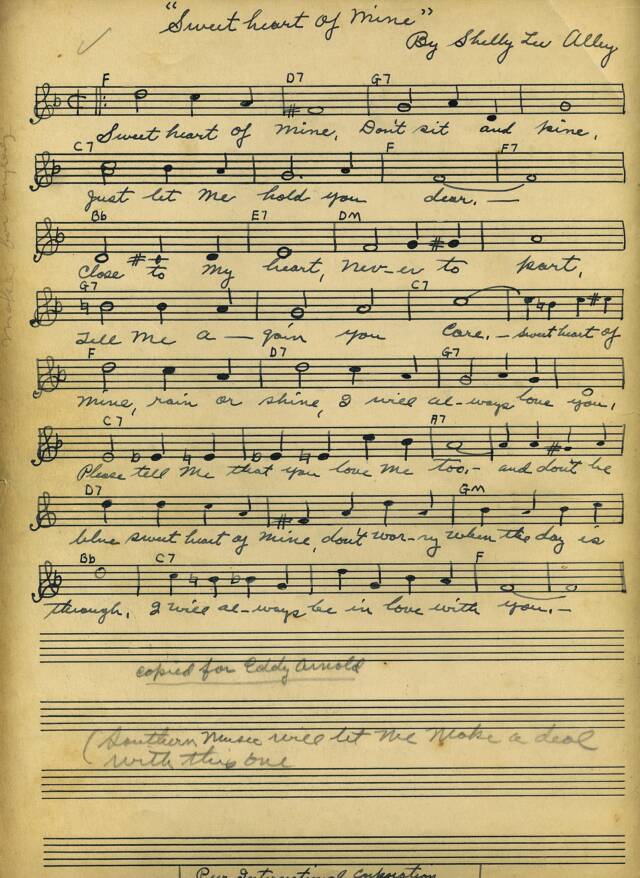 "Sweetheart of Mine"
By Shelly Lee Alley
F D7 G7
Sweet heart of mine, Don't sit and pine,
C7 F F7
Just let me hold you dear. —
Bb E7 DM
Close to my heart, Nev-er to part,
G7 C7
Tell me a — gain you Care. — sweet heart of
F D7 G7
Mine, rain or shine, I will al-ways love you,
C7 A7
Please tell me that you love me too, - and don't be
D7 GM
blue sweet heart of mine, don't wor-ry when the day is
Bb C7 F
through, I will al-ways be in love with you. —
copied for Eddy Arnold
(Southern Music will let me make a deal
with this one
Peer International Corporation